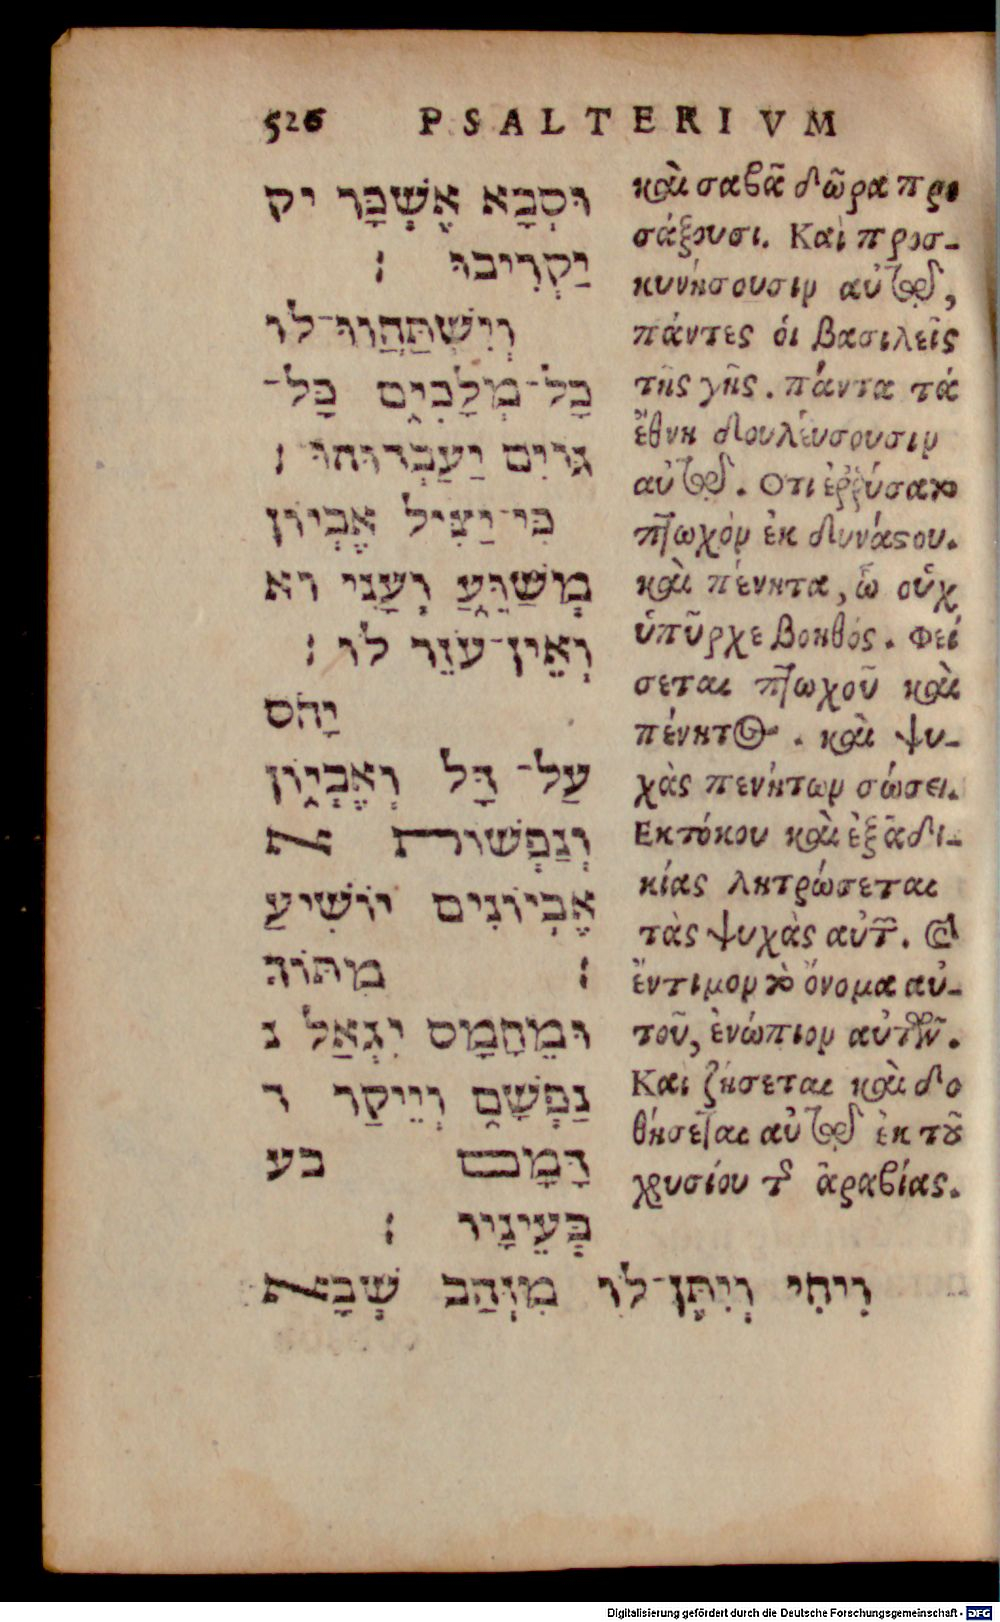 526 PSALTERIVM
וּסְבָא אֶשְׁכָּר יק
יַקְרִיבוּ ׃
וְיִשְׁתַּחֲווּ־לו
כָל־מְלָכִים כָּל־
גּוֹיִם יַעַבְדוּהוּ ׃
כִּי־יַצִּיל אֶבְיוֹן
מְשַׁוֵּעַ וְעָנִי וא
וְאֵין־עֹזֵר לוֹ ׃
יָחֹס
עַל־ דַּל וְאֶבְיוֹן
וְנַפְשׁוֹת א
אֶבְיוֹנִים יוֹשִׁיעַ
׃ מִתּוֹךְ
וּמֵחָמָס יִגְאַל נ
נַפְשָׁם וְיֵיקַר ד
דָּמָם בע
בְּעֵינָיו ׃
וִיחִי וְיִתֶּן־לוֹ מִזְּהַב שְׁבָא
καὶ σαβᾶ δῶρα προ
σάξουσι. Καὶ προσ-
κυνήσουσιν αὐτῷ,
πάντες ὁι βασιλεῖς
τῆς γῆς. πάντα τά
ἔθνη δουλέυσουσιν
αὐτῷ. Οτι ἐῤῥύσατο
πτωχὸν ἐκ δυνάστου.
καὶ πένητα, ὧ οὐχ
ὑπῦρχε βοηθός. Φεί
σεται πτωχοῦ καὶ
πένητος. καὶ ψυ-
χὰς πενήτων σώσει.
Εκτόκου καὶ ἐξᾶδι-
κίας λητρώσεται
τὰς ψυχὰς αὐτῶν. Καὶ
ἔντιμον τὸ ὄνομα αὐ-
τοῦ, ἐνώπιον αὐτῶν.
Και ζήσεται καὶ δο
θήσεται αὐτῷ ἐκ τοῦ
χρυσίου τῆς ἀραβίας.
Digitalisierung gefördert durch die Deutsche Forschungsgemeinschaft - DFG